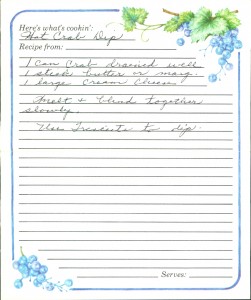 Here's what's cookin':
Hot Crab Dip
Recipe from:
1 can Crab drained well
1 stick butter or marg.
1 large Cream Cheese
Melt & blend together
slowly.
Use Triscuits to dip.
Serves: